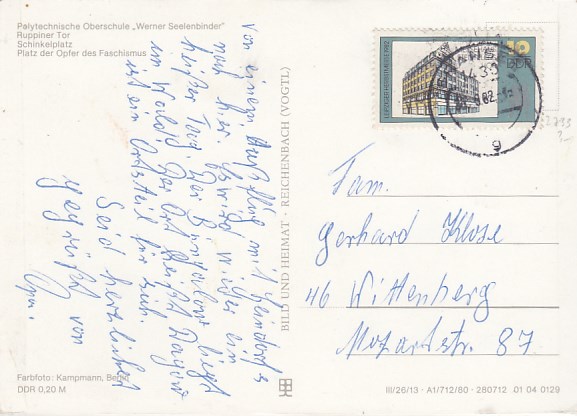 Polytechnische Oberschule „Werner Seelenbinder"
Ruppiner Tor
Schinkelplatz
Platz der Opfer des Faschismus
Von einem Ausflug mit
nach hier. Es wird wieder ein
heißer Tag. Der Bungalow liegt
im Wald. Der Ort heißt
ist ein Ortsteil
Seid herzlichst
gegrüßt von
Opa.
BILD UND HEIMAT · REICHENBACH (VOGTL)
10
DDR
1439
82
g
Fam.
Gerhard Klose
46 Wittenberg
Mozartstr. 87
Farbfoto: Kampmann, Berlin
DDR 0,20 M
III/26/13 · A1/712/80 · 280712 01 04 0129